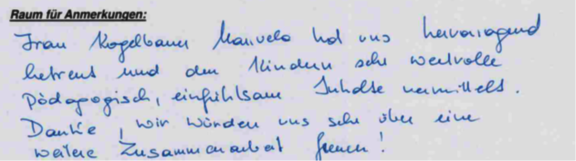 Raum für Anmerkungen:
Frau Kogelbauer Manuela hat uns hervorragend
betreut und den Kindern sehr wertvolle
Pädagogisch, einfühlsam Inhalte vermittelt.
Danke, wir würden uns sehr über eine
weitere Zusammenarbeit freuen!